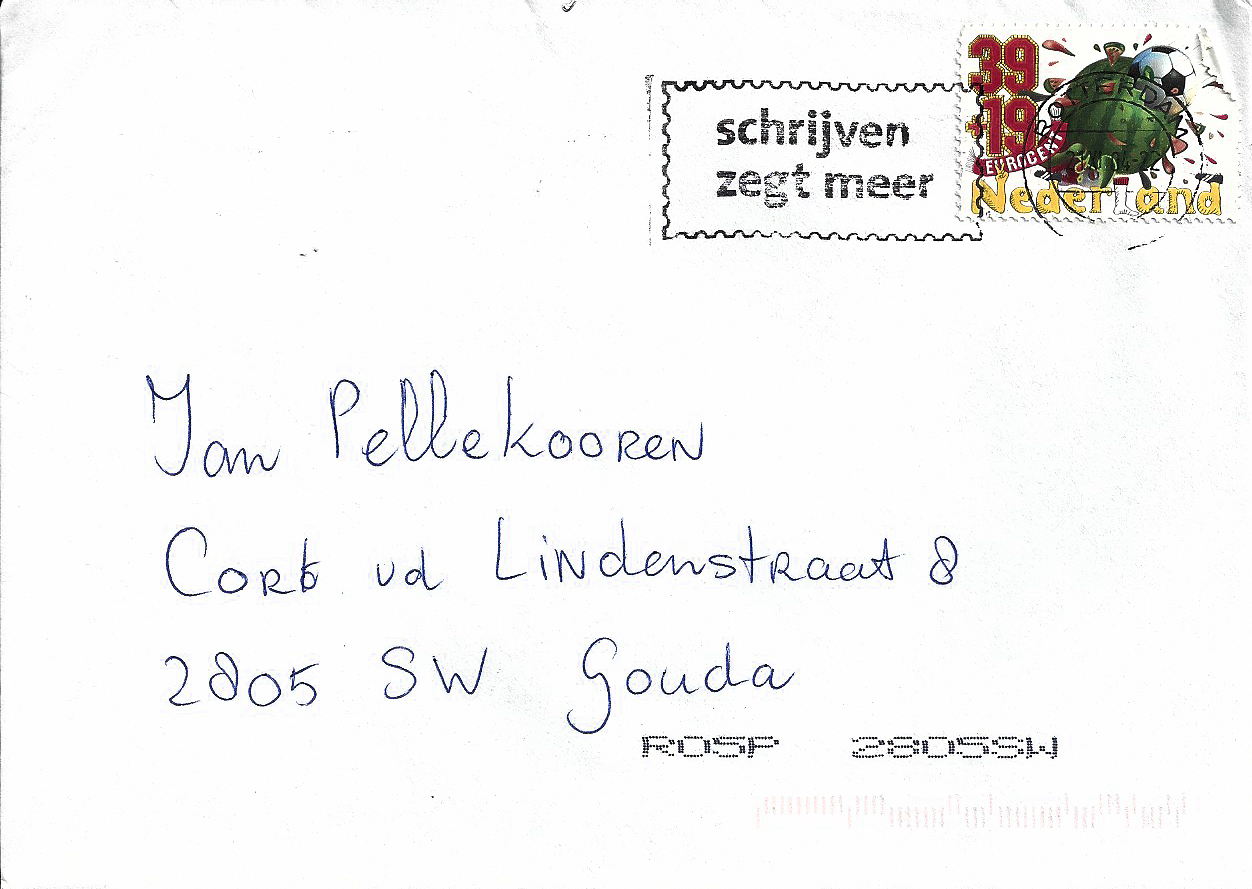 39
+19
EUROCENT
Nederland
ROTTERDAM
schrijven
zegt meer
Jan Pellekooren
Cort vd Lindenstraat 8
2805 SW Gouda
ROSP 2805SW